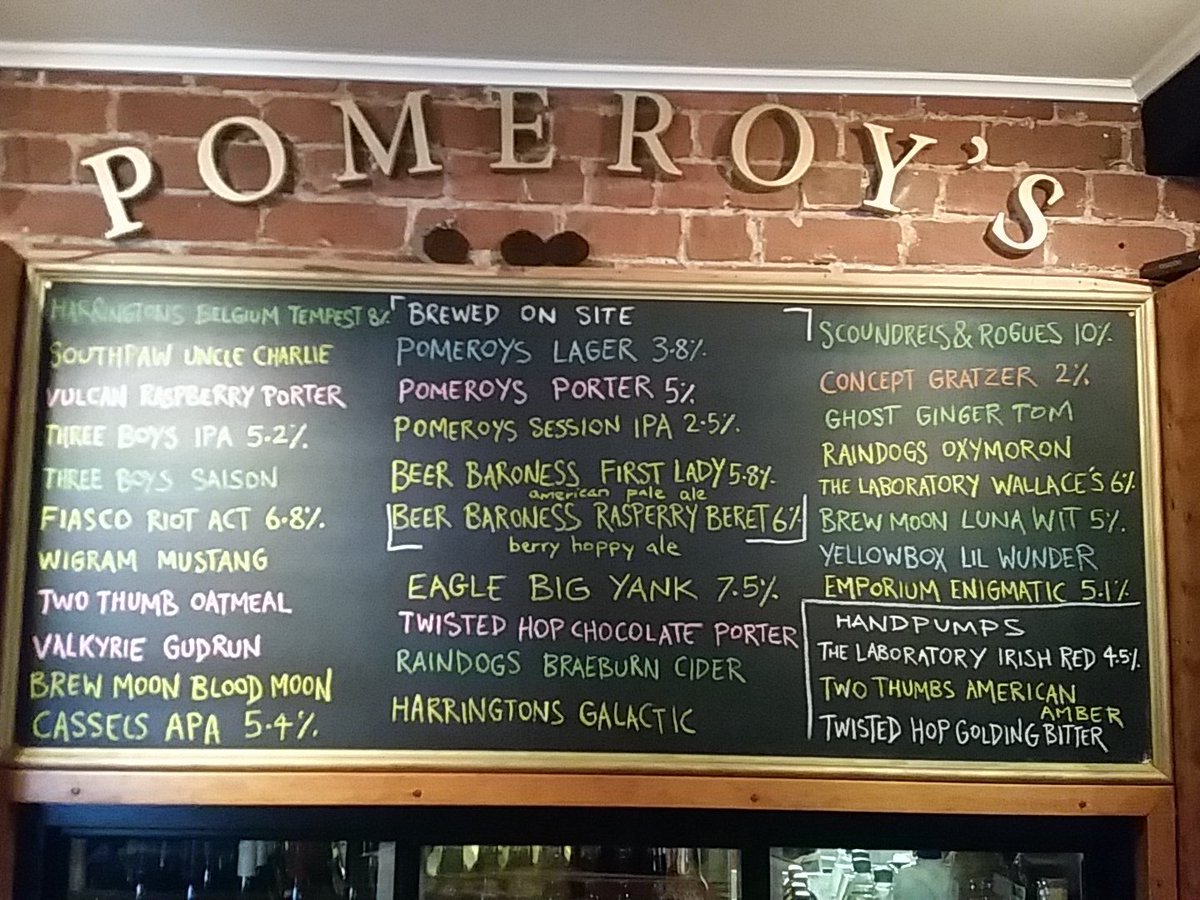 POMEROY'S
HARRINGTONS BELGIUM TEMPEST 8%
SOUTHPAW UNCLE CHARLIE
VULCAN RASPBERRY PORTER
THREE BOYS IPA 5.2%
THREE BOYS SAISON
FIASCO RIOT ACT 6.8%
WIGRAM MUSTANG
TWO THUMB OATMEAL
VALKYRIE GUDRUN
BREW MOON BLOOD MOON
CASSELS APA 5.4%
BREWED ON SITE
POMEROYS LAGER 3.8%
POMEROYS PORTER 5%
POMEROYS SESSION IPA 2.5%
BEER BARONESS FIRST LADY 5.8%
american pale ale
BEER BARONESS RASPERRY BERET 6%
berry hoppy ale
EAGLE BIG YANK 7.5%
TWISTED HOP CHOCOLATE PORTER
RAINDOGS BRAEBURN CIDER
HARRINGTONS GALACTIC
SCOUNDRELS & ROGUES 10%
CONCEPT GRATZER 2%
GHOST GINGER TOM
RAINDOGS OXYMORON
THE LABORATORY WALLACE'S 6%
BREW MOON LUNA WIT 5%
YELLOWBOX LIL WUNDER
EMPORIUM ENIGMATIC 5.1%
HANDPUMPS
THE LABORATORY IRISH RED 4.5%
TWO THUMBS AMERICAN
AMBER
TWISTED HOP GOLDING BITTER